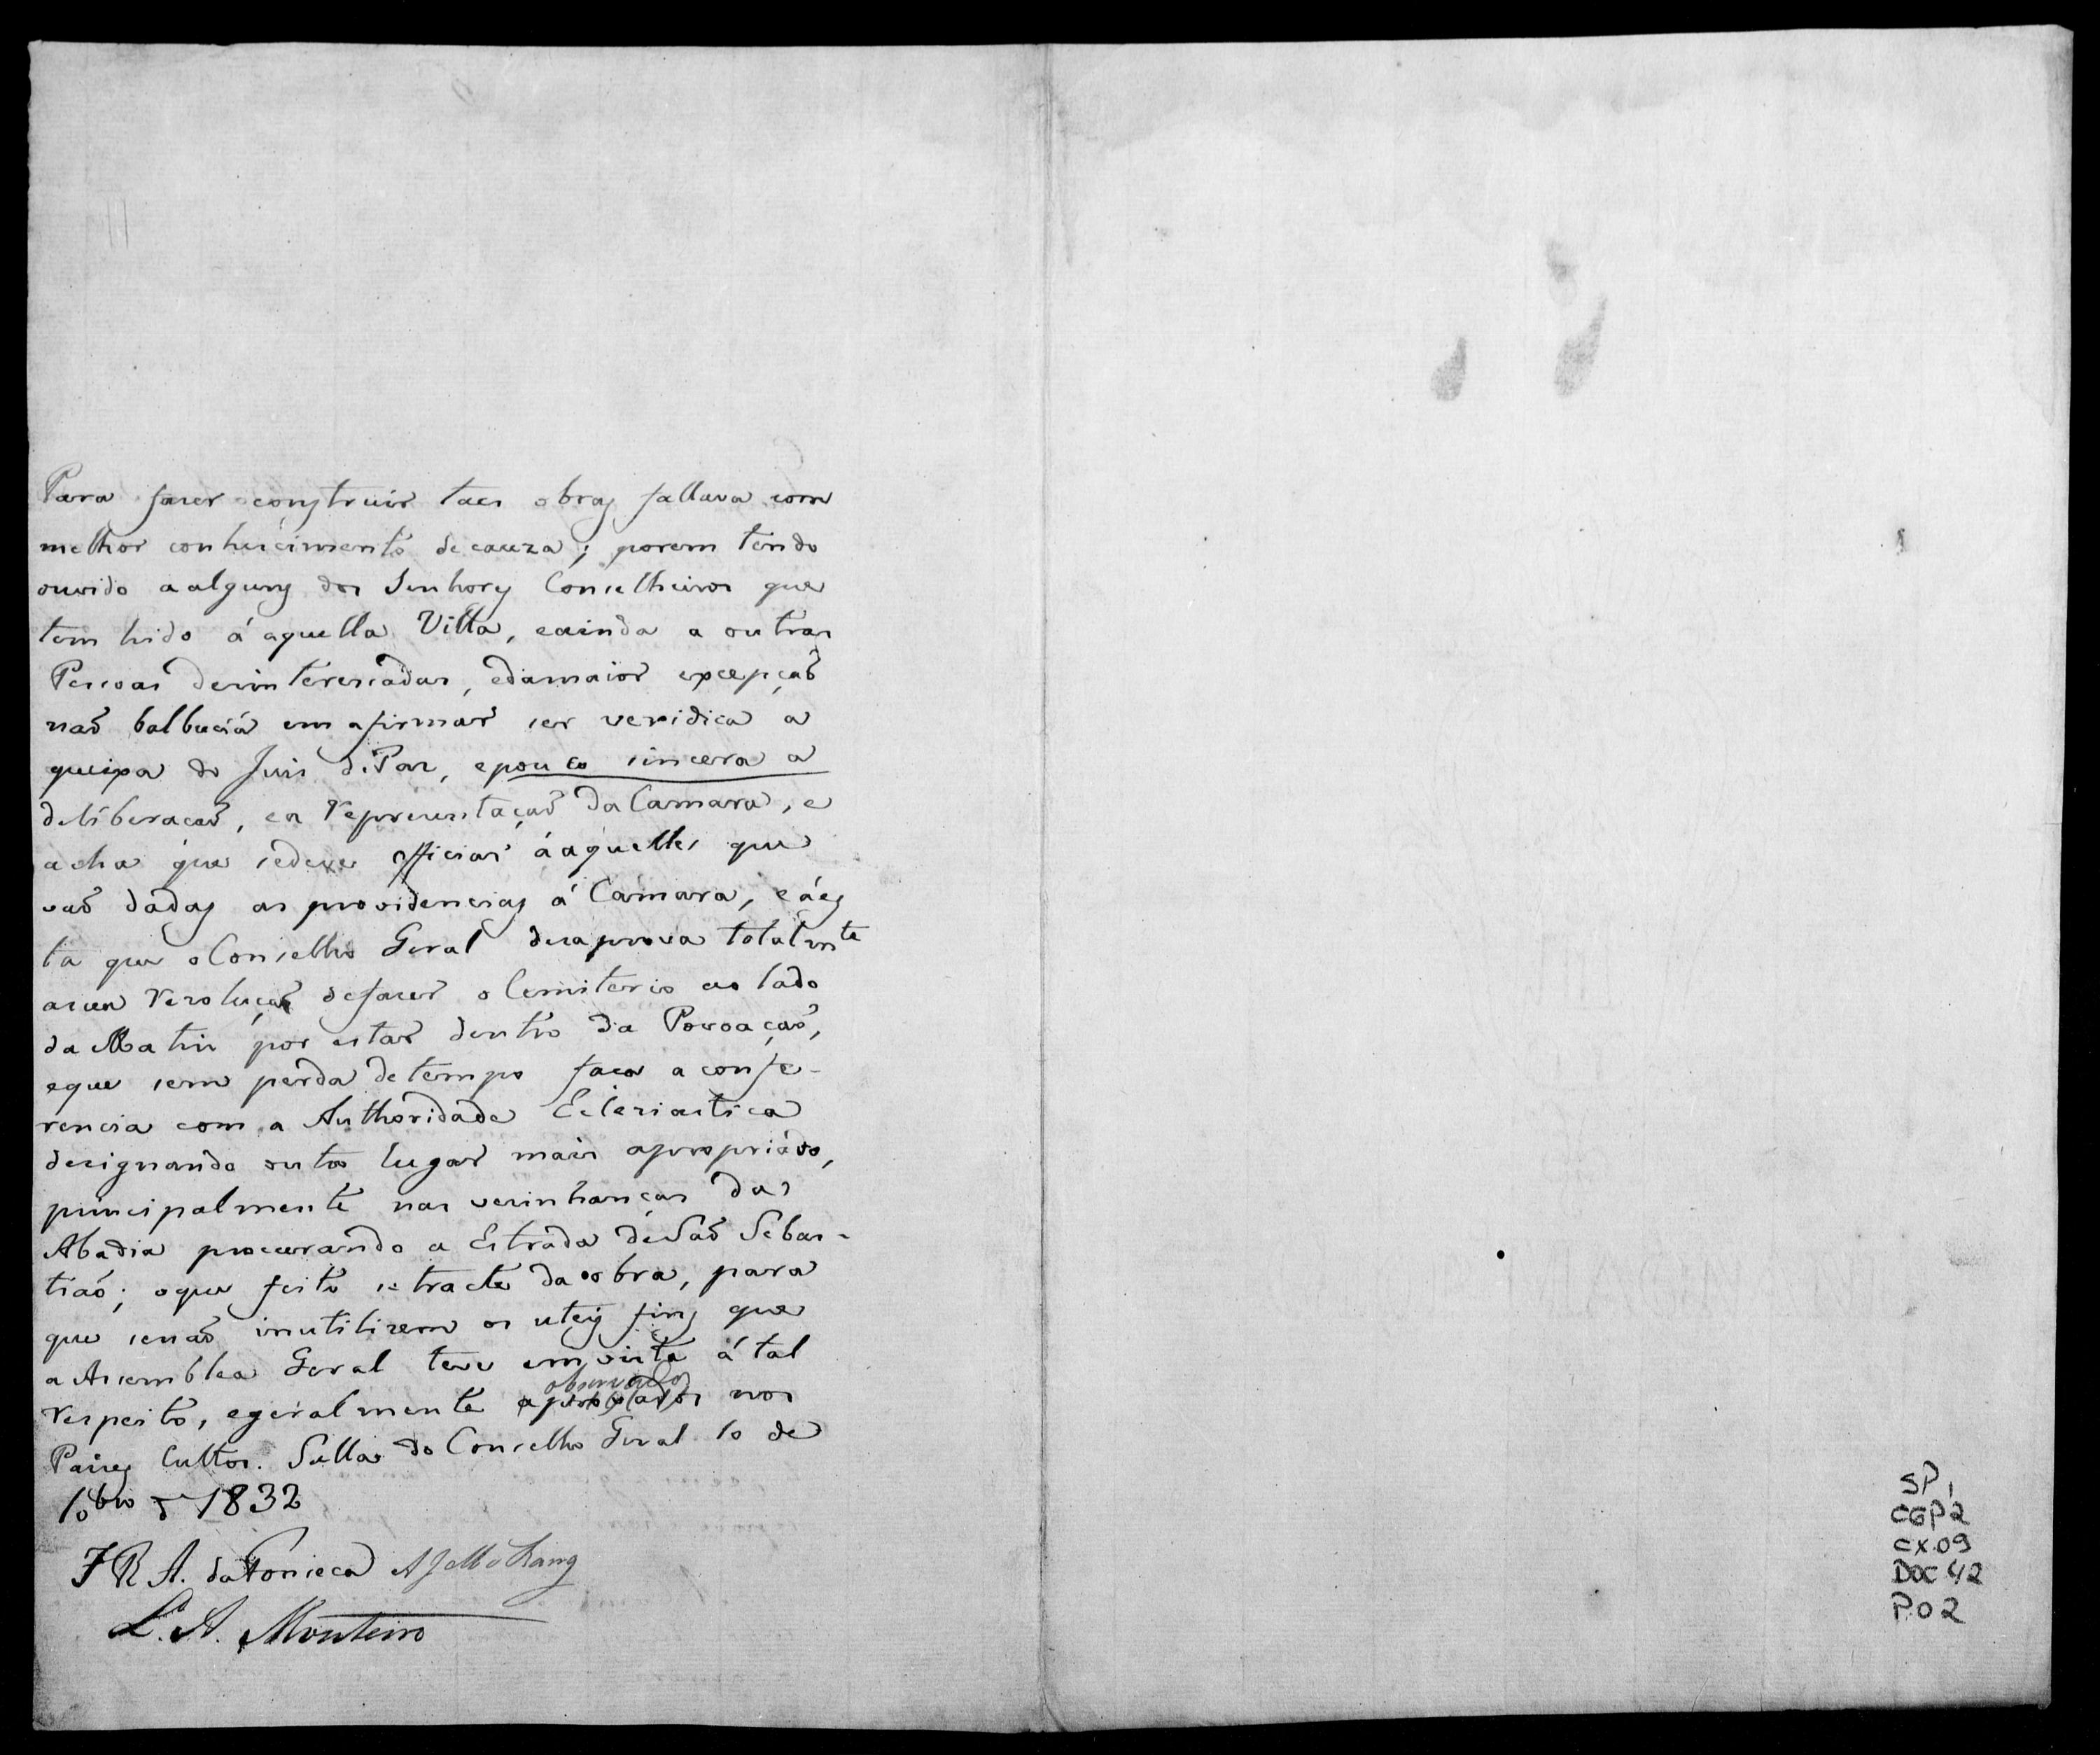 Para fazer construir taes obras fallava com
melhor conhecimento de cauza; porem tendo
ouvido a alguns dos Senhores Conselheiros que
tem hido á aquella Villa, e ainda a outras
Pessoas desinteressadas, e da maior excepçaõ
naõ balbuciá em afirmar ser veridica a
queixa do Juis de Paz, e pouco sincera a
deliberacaõ, e a Representaçaõ da Camara, e
acha que se deve officiar á aquelles que
saõ dadas as providencias á Camara, e á es
ta que o Conselho Geral desaprova totalmte
a sua Resoluçaõ de fazer o Cemiterio ao lado
da Matriz por estar dentro da Povoaçaõ,
e que sem perda de tempo faça a confe-
rencia com a Authoridade Eclesiastica
designando outro lugar mais apropriado,
principalmente nas vezinhanças da
Abadia procurando a Estrada de Saõ Sebas-
tiaõ; o que feito se tracte da obra, para
que se naõ inutilizem os uteis fins que
a Assemblea Geral teve em vista á tal
observados
respeito, e geralmente nos
Paizes Cultos. Salla do Conselho Geral 10 de
10bro d 1832
F R A. da Fonseca
L. A. Monteiro
SP,
CGP2
CX.09
DOC 42
P.02